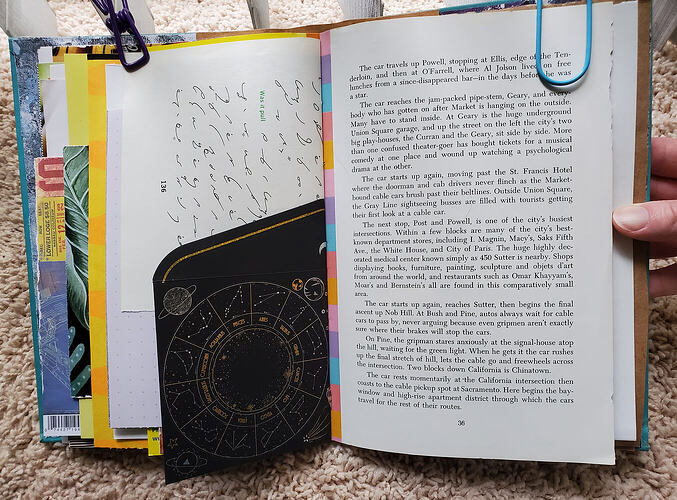 Was it pull
136
LOWER LOGE
PISCES
ARIES
The car travels up Powell, stopping at Ellis, edge of the Ten-
derloin, and then at O'Farrell, where Al Jolson lived on free
lunches from a since-disappeared bar—in the days before he was
a star.
The car reaches the jam-packed pipe-stem, Geary, and every-
body who has gotten on after Market is hanging on the outside.
Many have to stand inside. At Geary is the huge underground
Union Square garage, and up the street on the left the city's two
big play-houses, the Curran and the Geary, sit side by side. More
than one confused theater-goer has bought tickets for a musical
comedy at one place and wound up watching a psychological
drama at the other.
The car starts up again, moving past the St. Francis Hotel
where the doorman and cab drivers never flinch as the Market-
bound cable cars brush past their beltlines. Outside Union Square,
the Gray Line sightseeing busses are filled with tourists getting
their first look at a cable car.
The next stopping, Post and Powell, is one of the city's busiest
intersections. Within a few blocks are many of the city's best-
known department stores, including I. Magnin, Macy's, Saks Fifth
Ave., the White House, and City of Paris. The huge highly dec-
orated medical center known simply as 450 Sutter is nearby. Shops
displaying books, furniture, painting, sculpture and objets d'art
from around the world, and restaurants such as Omar Khayyam's,
Moar's and Bernstein's all are found in this comparatively small
area.
The car starts up again, reaches Sutter, then begins the final
ascent up Nob Hill. At Bush and Pine, autos always wait for cable
cars to pass by, never arguing because even gripmen aren't exactly
sure where their brakes will stop the cars.
On Pine, the gripman stares anxiously at the signal-house atop
the hill, waiting for the green light. When he gets it the car rushes
up the final stretch of hill, lets the cable go and freewheels across
the intersection. Two blocks down California is Chinatown.
The car rests momentarily at the California intersection then
coasts to the cable pickup spot at Sacramento. Here begins the bay-
window and high-rise apartment district through which the cars
travel for the rest of their routes.
36